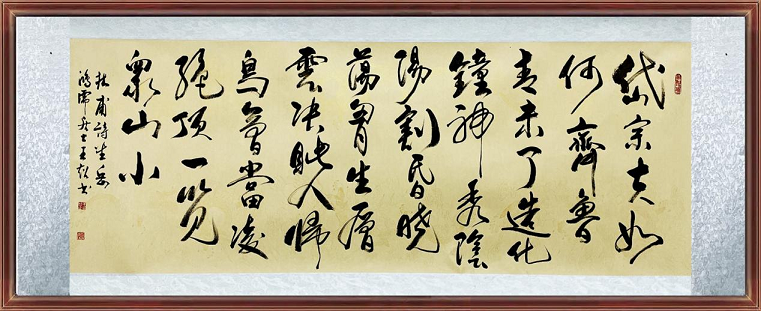 岱宗夫如
何齊魯
青未了造化
鐘神秀陰
陽割昏曉
蕩胸生層
雲决眦入歸
鳥會當凌
絕頂一览
衆山小
杜甫詩望岳
王書